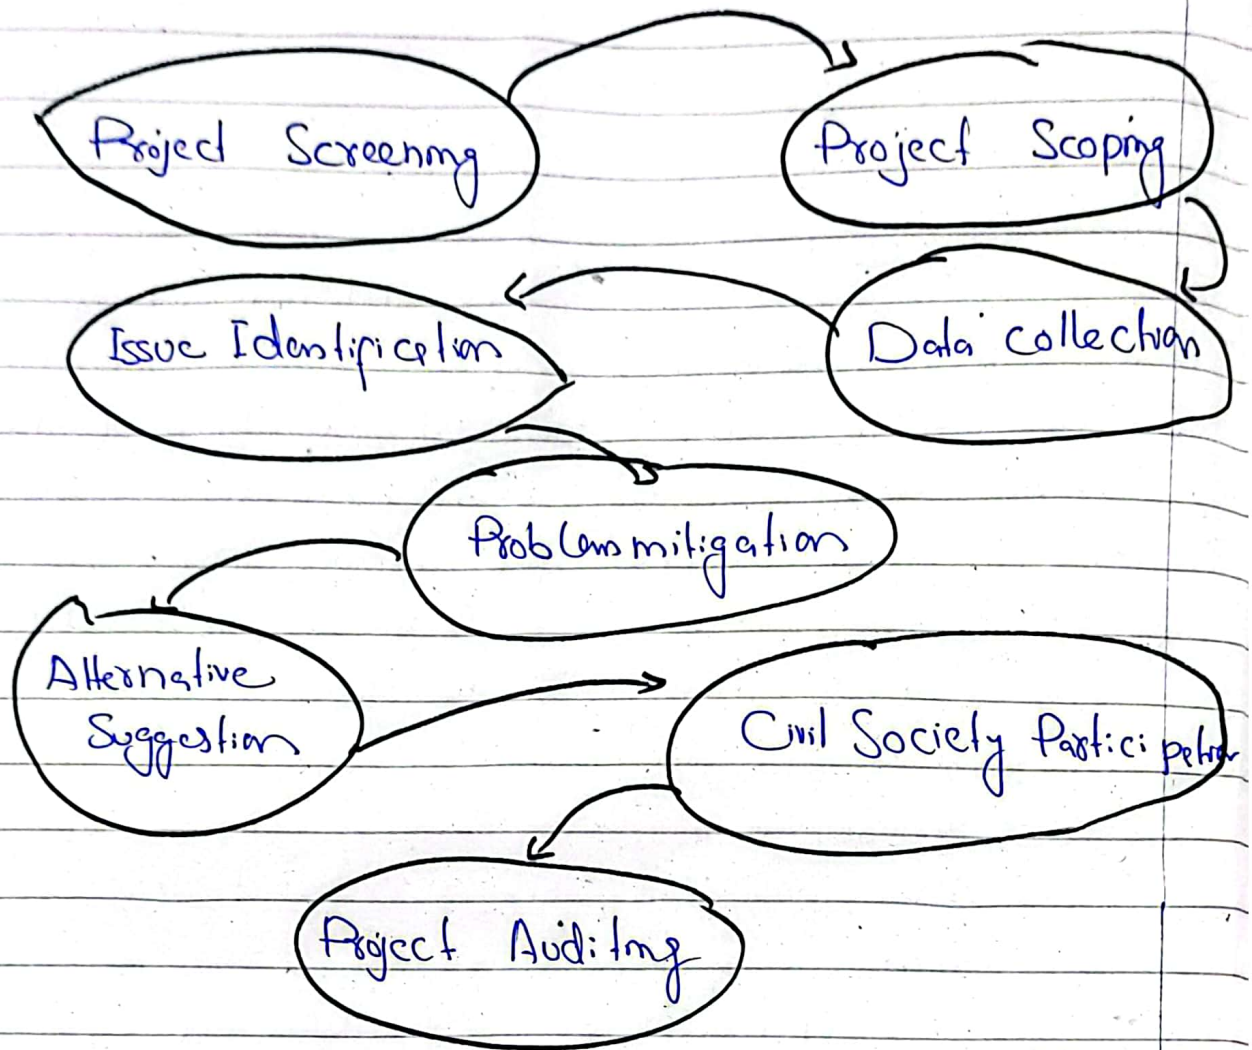 Project Screening
Project Scoping
Data collection
Issue Identification
Problem mitigation
Alternative
Suggestion
Civil Society Participation
Project Auditing